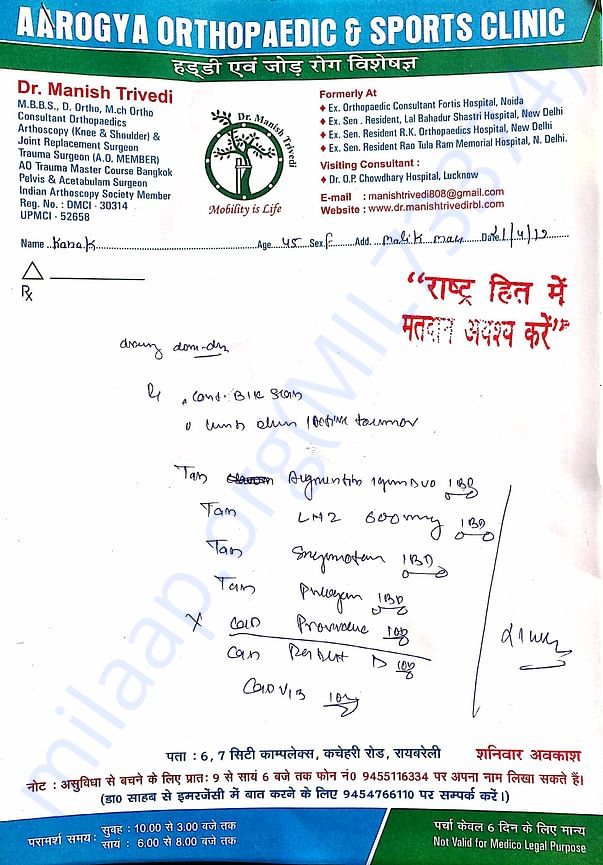 AAROGYA ORTHOPAEDIC & SPORTS CLINIC
हड्डी एवं जोड़ रोग विशेषज्ञ
Dr. Manish Trivedi
M.B.B.S., D. Ortho, M.ch Ortho
Consultant Orthopaedics
Arthoscopy (Knee & Shoulder) &
Joint Replacement Surgeon
Trauma Surgeon (A.O. MEMBER)
AO Trauma Master Course Bangkok
Pelvis & Acetabulam Surgeon
Indian Arthoscopy Society Member
Reg. No. : DMCI - 30314
UPMCI - 52658
Dr. Manish Trivedi
Mobility is Life
Formerly At
Ex. Orthopaedic Consultant Fortis Hospital, Noida
Ex. Sen . Resident, Lal Bahadur Shastri Hospital, New Delhi
Ex. Sen. Resident R.K. Orthopaedics Hospital, New Delhi
Ex. Sen. Resident Rao Tula Ram Memorial Hospital, N. Delhi.
Visiting Consultant :
Dr. O.P. Chowdhary Hospital, Lucknow
E-mail : manishtrivedi808@gmail.com
Website : www.dr.manishtrivedirbl.com
Name Kanak Age 45 Sex F Add. Malik mau Date 21/4/19
Rx
"राष्ट्र हित में
मतदान अवश्य करें"
Tab Augmentin 1gm Duo 1BD
Tab LNZ 600mg 1BD
Tab 1BD
Tab 1BD
X Cap
D
पता : 6, 7 सिटी काम्पलेक्स, कचेहरी रोड, रायबरेली शनिवार अवकाश
नोट : असुविधा से बचने के लिए प्रातः 9 से सायं 6 बजे तक फोन नं0 9455116334 पर अपना नाम लिखा सकते हैं।
(डा0 साहब से इमरजेंसी में बात करने के लिए 9454766110 पर सम्पर्क करें।)
परामर्श समय: सुबह : 10.00 से 3.00 बजे तक
सायं : 6.00 से 8.00 बजे तक
पर्चा केवल 6 दिन के लिए मान्य
Not Valid for Medico Legal Purpose